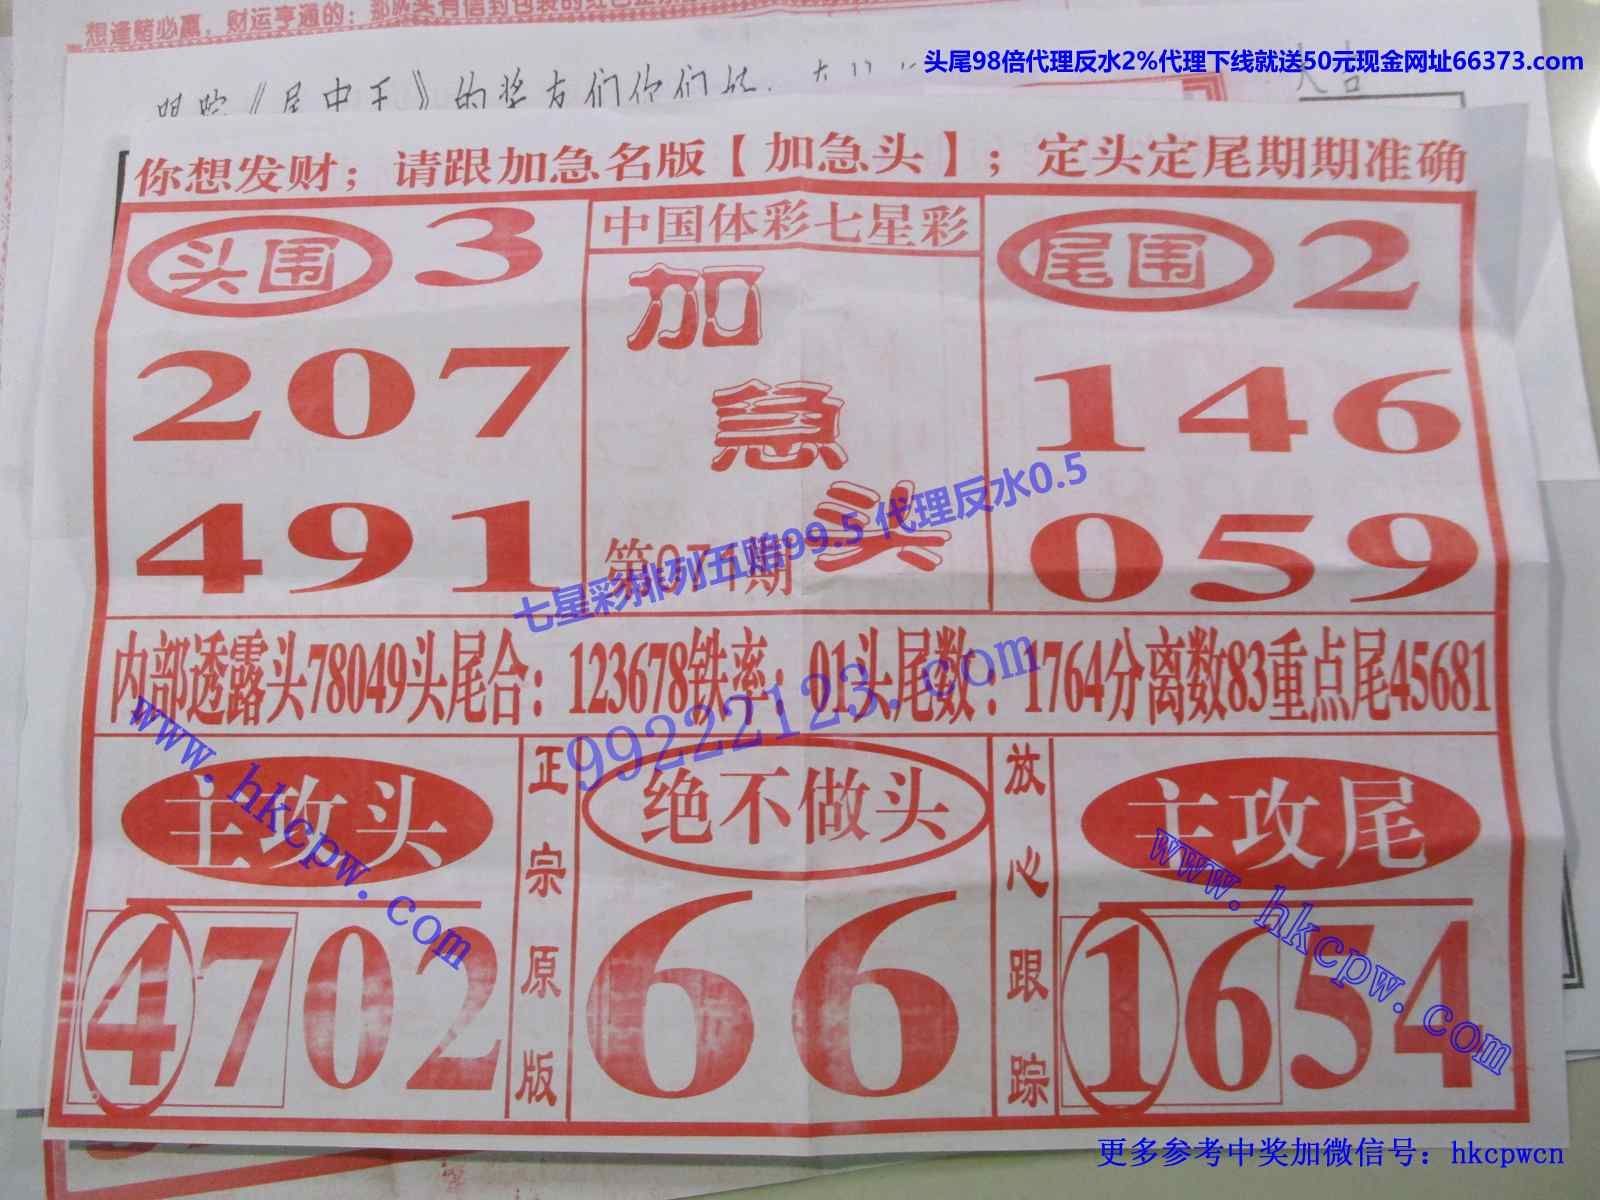 想逢赌必赢，财运亨通的：
头尾98倍代理反水2%代理下线就送50元现金网址66373.com
跟踪《尾中王》的奖友们你们好
大吉
你想发财；请跟加急名版【加急头】；定头定尾期期准确
头围 3
207
491
中国体彩七星彩
加
急
头
第071期
尾围 2
146
059
七星彩排列五赔99.5 代理反水0.5
内部透露头78049头尾合：123678铁率：01头尾数：1764分离数83重点尾45681
99222123.com
www.hkcpw.com
主攻头
4702
正宗原版
绝不做头
66
放心跟踪
主攻尾
1654
www.hkcpw.com
更多参考中奖加微信号：hkcpwcn